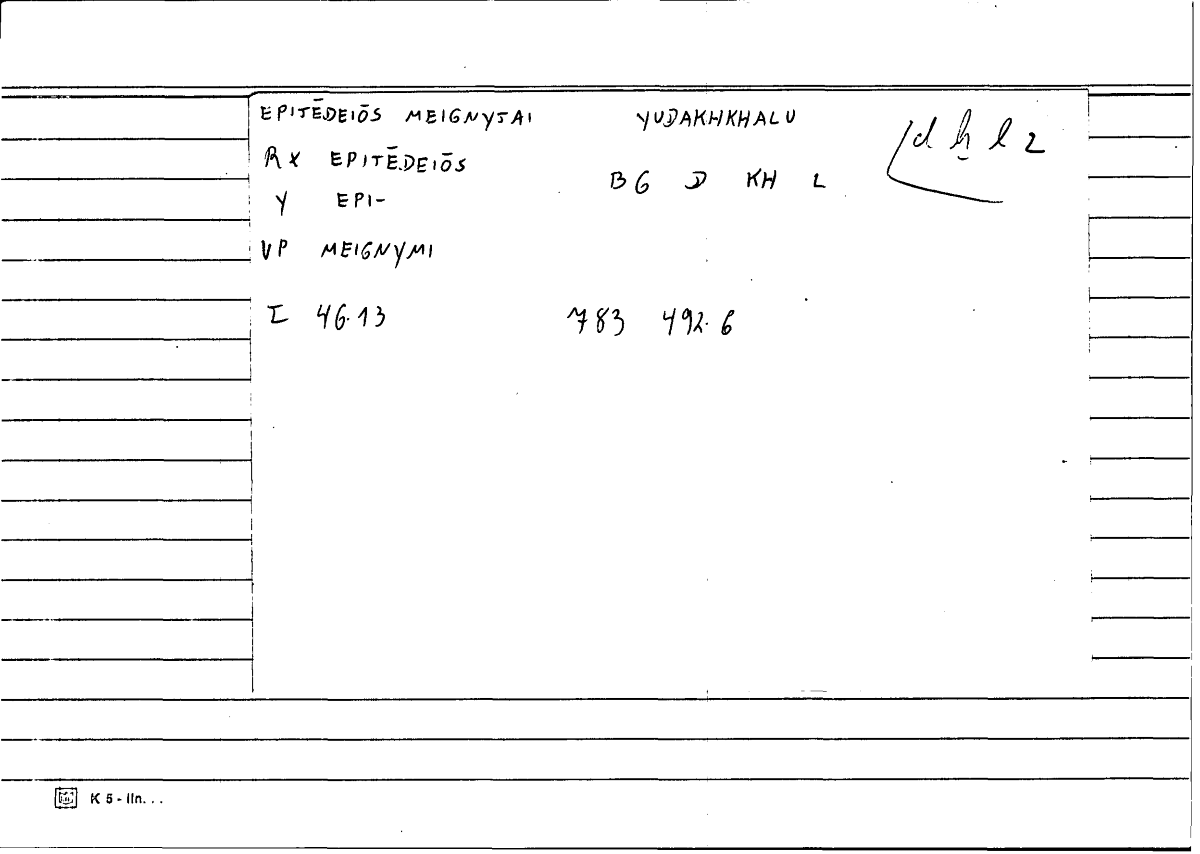 EPITĒDEIŌS MEIGNYTAI YUDAKHKHALU
RX EPITĒDEIŌS
BG D KH L
d ḫ l 2
Y EPI-
VP MEIGNYMI
I 46.13 783 492.6
K 5 - lin. . .